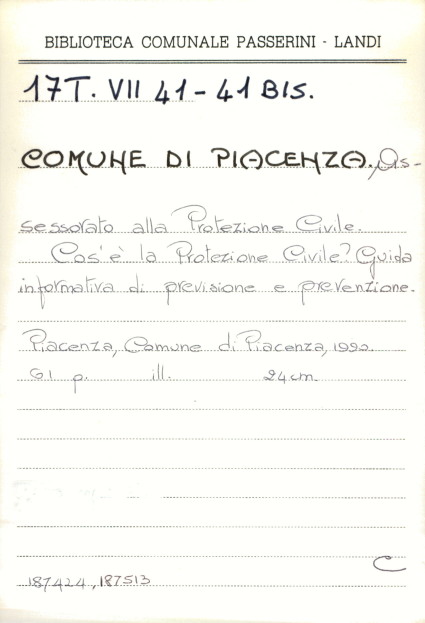 BIBLIOTECA COMUNALE PASSERINI - LANDI
17T. VII 41 - 41 BIS.
COMUNE DI PIACENZA., As-
sessorato alla Protezione Civile.
Cos'è la Protezione Civile? Guida
informativa di previsione e prevenzione.
Piacenza, Comune di Piacenza, 1992.
61 p. ill. 24 cm.
C
187424, 187513